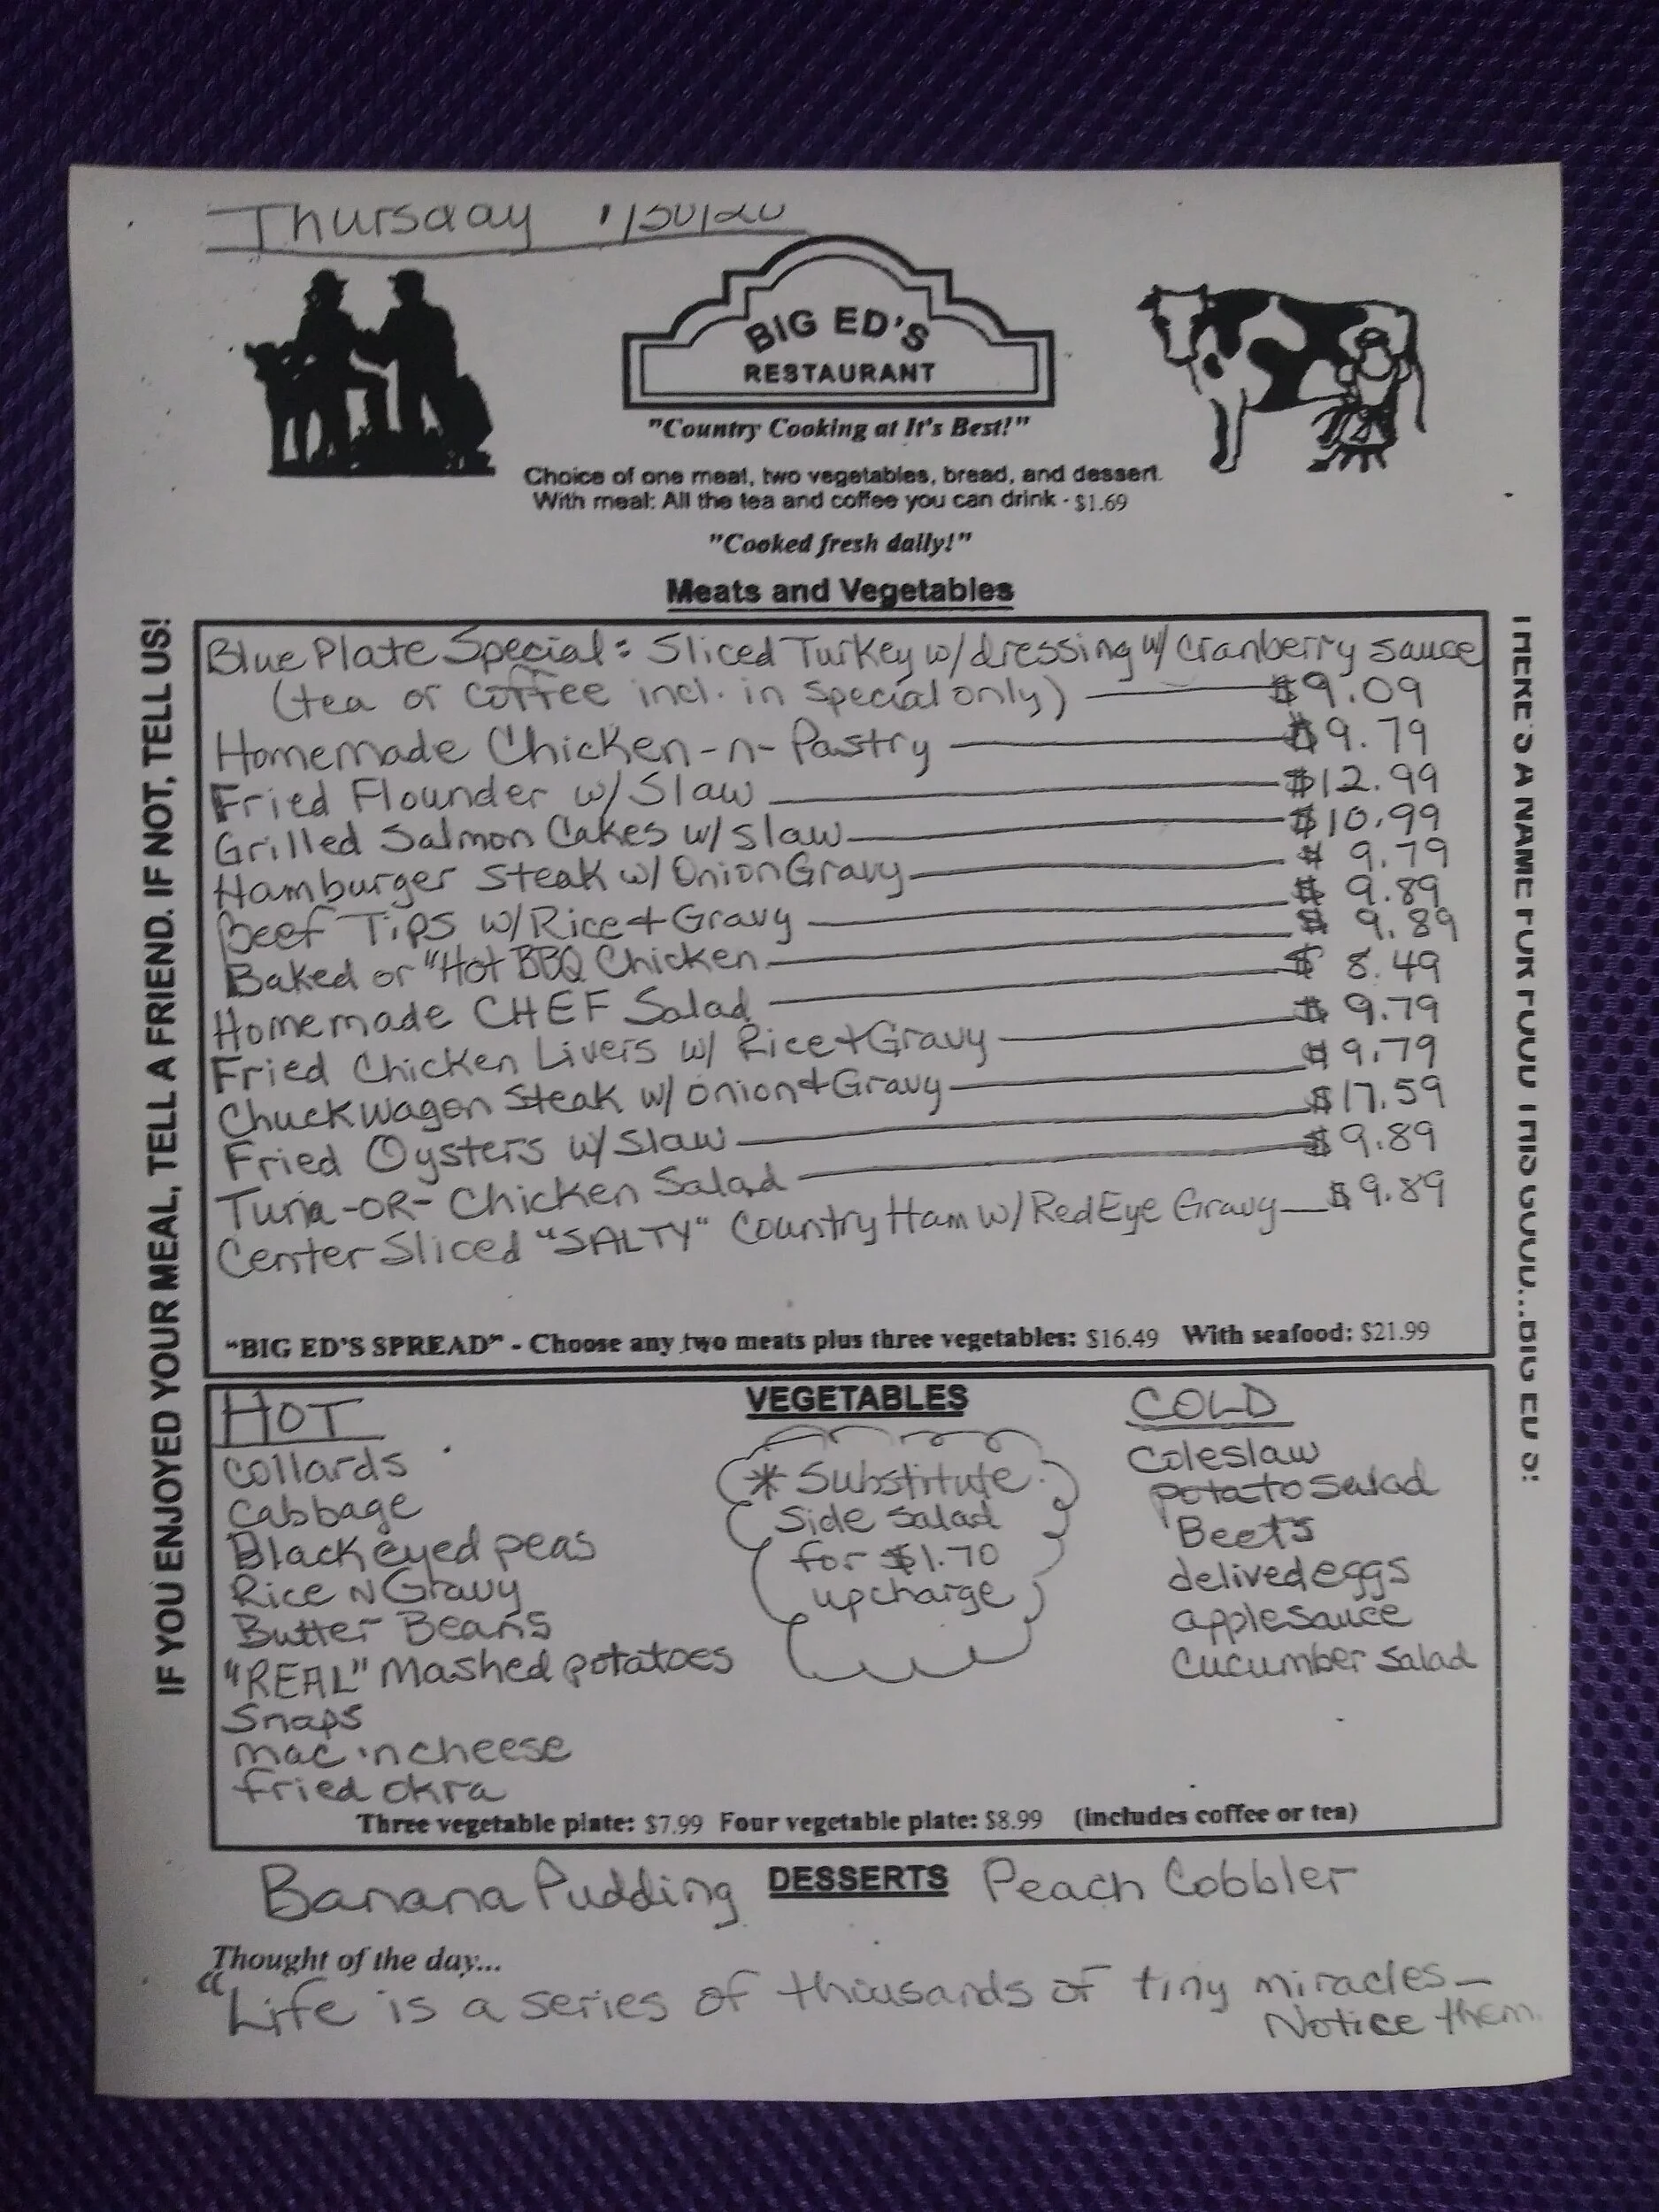 Thursday 1/30/20
BIG ED'S
RESTAURANT
"Country Cooking at It's Best!"
Choice of one meat, two vegetables, bread, and dessert.
With meal: All the tea and coffee you can drink - $1.69
"Cooked fresh daily!"
Meats and Vegetables
IF YOU ENJOYED YOUR MEAL, TELL A FRIEND. IF NOT, TELL US!
Blue Plate Special: Sliced Turkey w/dressing w/ Cranberry sauce
(tea or coffee incl. in special only) $9.09
Homemade Chicken-n-Pastry $9.79
Fried Flounder w/Slaw $12.99
Grilled Salmon Cakes w/slaw $10.99
Hamburger Steak w/OnionGravy $9.79
Beef Tips w/Rice+Gravy $9.89
Baked or "Hot BBQ Chicken $9.89
Homemade CHEF Salad $8.49
Fried Chicken Livers w/ Rice+Gravy $9.79
Chuckwagon Steak w/ onion+Gravy $9.79
Fried Oysters w/Slaw $17.59
Tuna -OR- Chicken Salad $9.89
Center Sliced "SALTY" Country Ham w/RedEye Gravy $9.89
"BIG ED'S SPREAD" - Choose any two meats plus three vegetables: $16.49 With seafood: $21.99
THERE'S A NAME FOR FOOD THIS GOOD...BIG ED'S!
VEGETABLES
HOT
Collards
Cabbage
Black eyed peas
Rice N Gravy
Butter Beans
"REAL" Mashed potatoes
Snaps
mac 'n cheese
fried okra
* Substitute
Side Salad
for $1.70
upcharge
COLD
Coleslaw
potato Salad
Beets
delived eggs
applesauce
Cucumber Salad
Three vegetable plate: $7.99 Four vegetable plate: $8.99 (includes coffee or tea)
Banana Pudding DESSERTS Peach Cobbler
Thought of the day...
"Life is a series of thousands of tiny miracles—
Notice them.